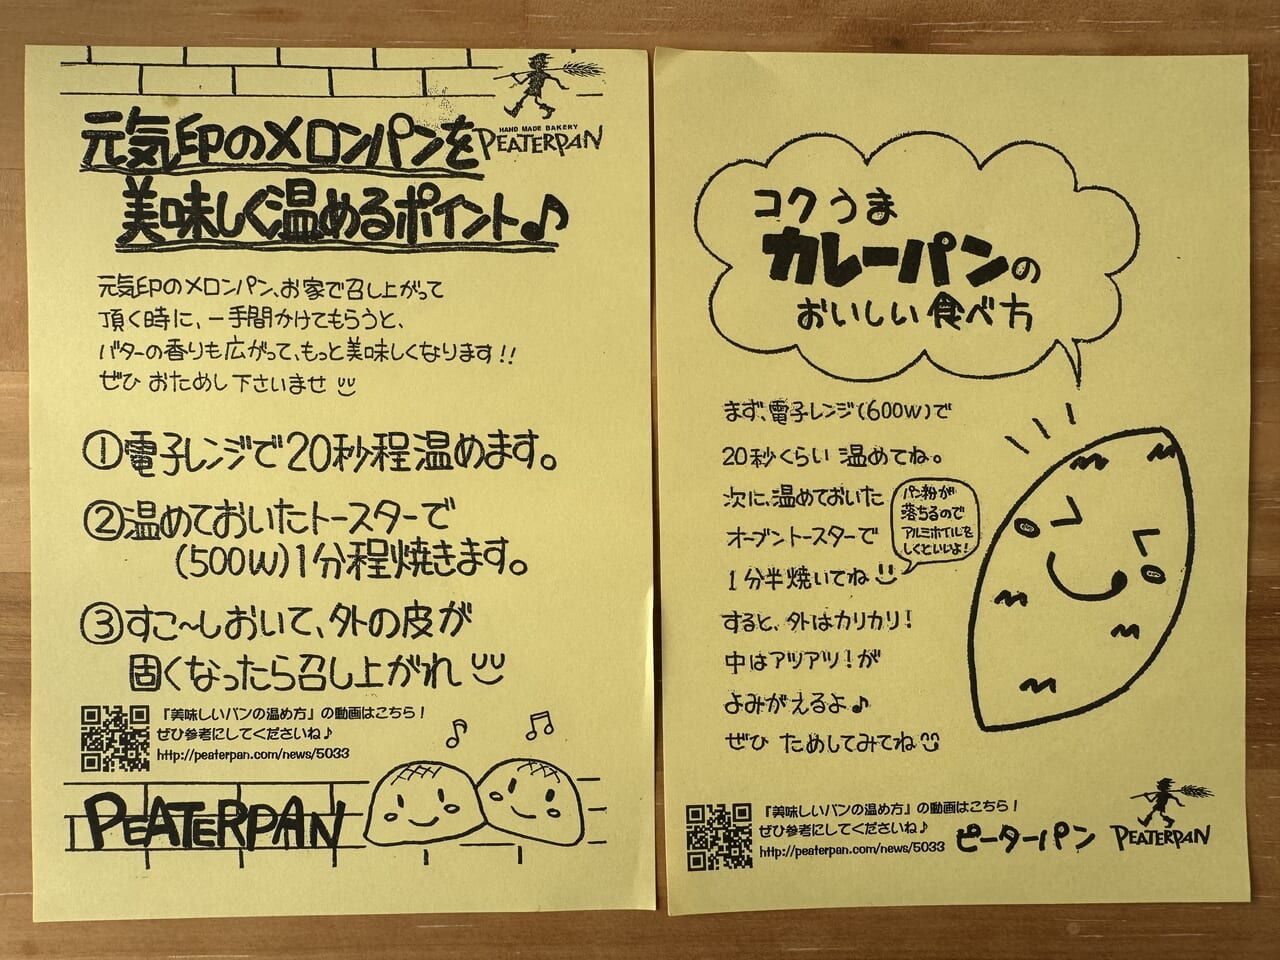 HAND MADE BAKERY
PEATERPAN
元気印のメロンパンを
美味しく温めるポイント♪
元気印のメロンパン、お家で召し上がって
頂く時に、一手間かけてもらうと、
バターの香りも広がって、もっと美味しくなります!!
ぜひ おためし下さいませ
①電子レンジで20秒程温めます。
②温めておいたトースターで
(500W)1分程焼きます。
③すこ〜しおいて、外の皮が
固くなったら召し上がれ
『美味しいパンの温め方』の動画はこちら!
ぜひ参考にしてくださいね♪
http://peaterpan.com/news/5033
PEATERPAN
コクうま
カレーパンの
おいしい食べ方
まず、電子レンジ(600W)で
20秒くらい 温めてね。
次に、温めておいた
オーブントースターで
1分半焼いてね
パン粉が
落ちるので
アルミホイルを
しくといいよ!
すると、外はカリカリ!
中はアツアツ!が
よみがえるよ♪
ぜひ ためしてみてね
『美味しいパンの温め方』の動画はこちら!
ぜひ参考にしてくださいね♪
http://peaterpan.com/news/5033
ピーターパン
PEATERPAN